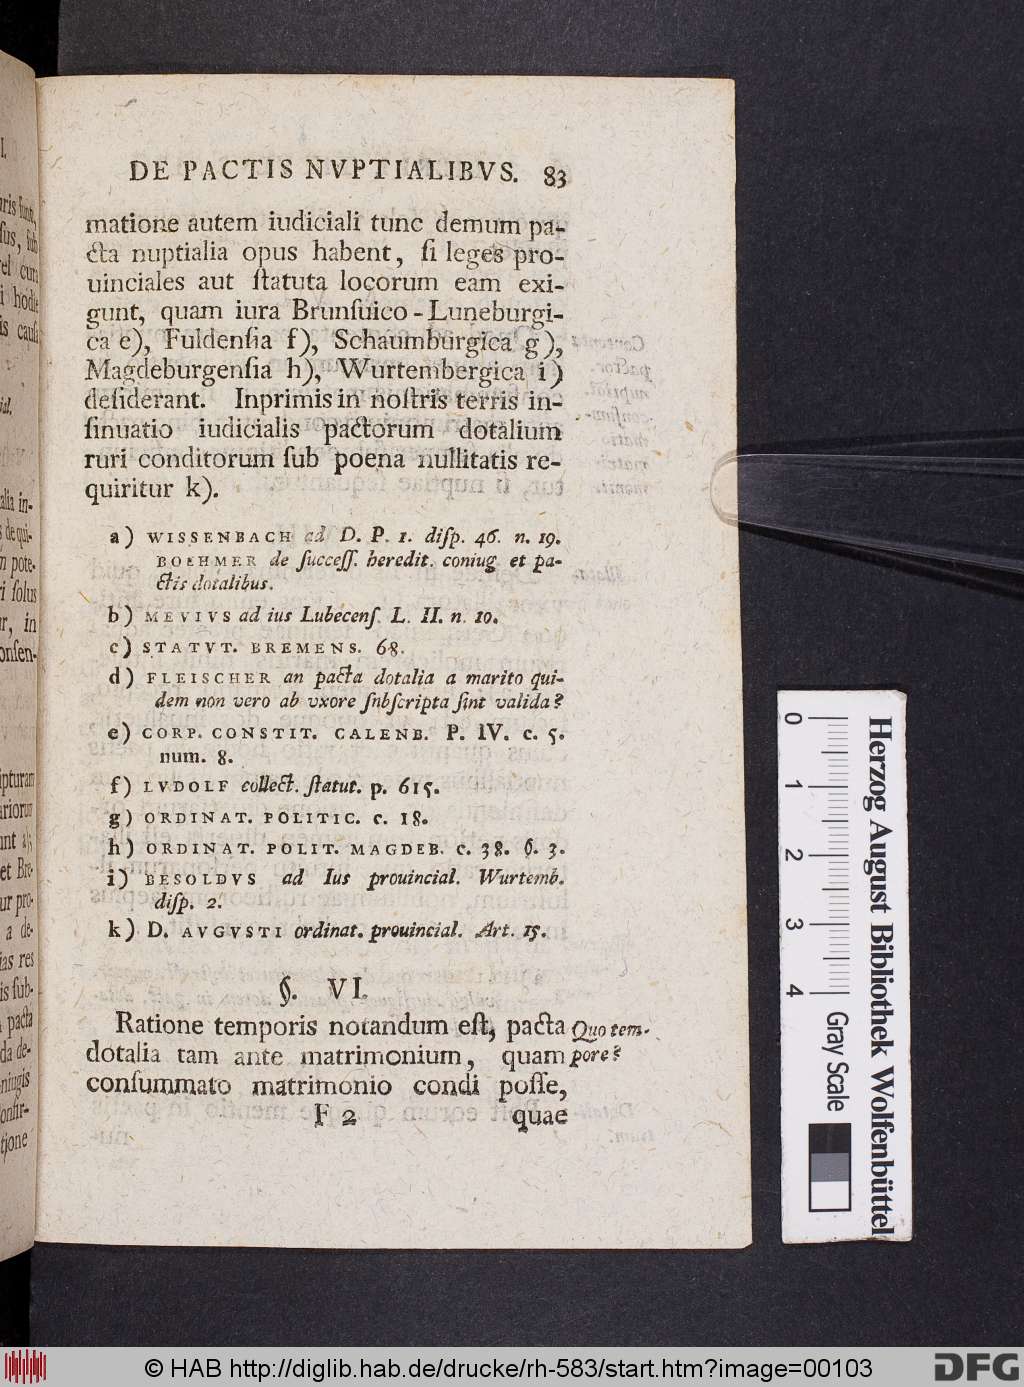 DE PACTIS NVPTIALIBVS. 83
matione autem iudiciali tunc demum pa-
cta nuptialia opus habent, ſi leges pro-
uinciales aut ſtatuta locorum eam exi-
gunt, quam iura Brunſuico-Luneburgi-
ca e), Fuldenſia f), Schaumburgica g),
Magdeburgenſia h), Wurtembergica i)
deſiderant. Inprimis in noſtris terris in-
ſinuatio iudicialis pactorum dotalium
ruri conditorum ſub poena nullitatis re-
quiritur k).
a) WISSENBACH ad D. P. 1. diſp. 46. n. 19.
BOEHMER de ſucceſſ. heredit. coniug. et pa-
ctis dotalibus.
b) MEVIVS ad ius Lubecenſ. L. II. n. 10.
c) STATVT. BREMENS. 68.
d) FLEISCHER an pacta dotalia a marito qui-
dem non vero ab vxore ſnbſcripta ſint valida?
e) CORP. CONSTIT. CALENB. P. IV. c. 5.
num. 8.
f) LVDOLF collect. ſtatut. p. 615.
g) ORDINAT. POLITIC. c. 18.
h) ORDINAT. POLIT. MAGDEB. c. 38. §. 3.
i) BESOLDVS ad Ius prouincial. Wurtemb.
diſp. 2.
k) D. AVGVSTI ordinat. prouincial. Art. 15.
§. VI.
Ratione temporis notandum eſt, pacta Quo tem-
dotalia tam ante matrimonium, quam pore?
conſummato matrimonio condi poſſe,
F 2 quae
0 1 2 3 4
Gray Scale
Herzog August Bibliothek Wolfenbüttel
© HAB http://diglib.hab.de/drucke/rh-583/start.htm?image=00103
DFG